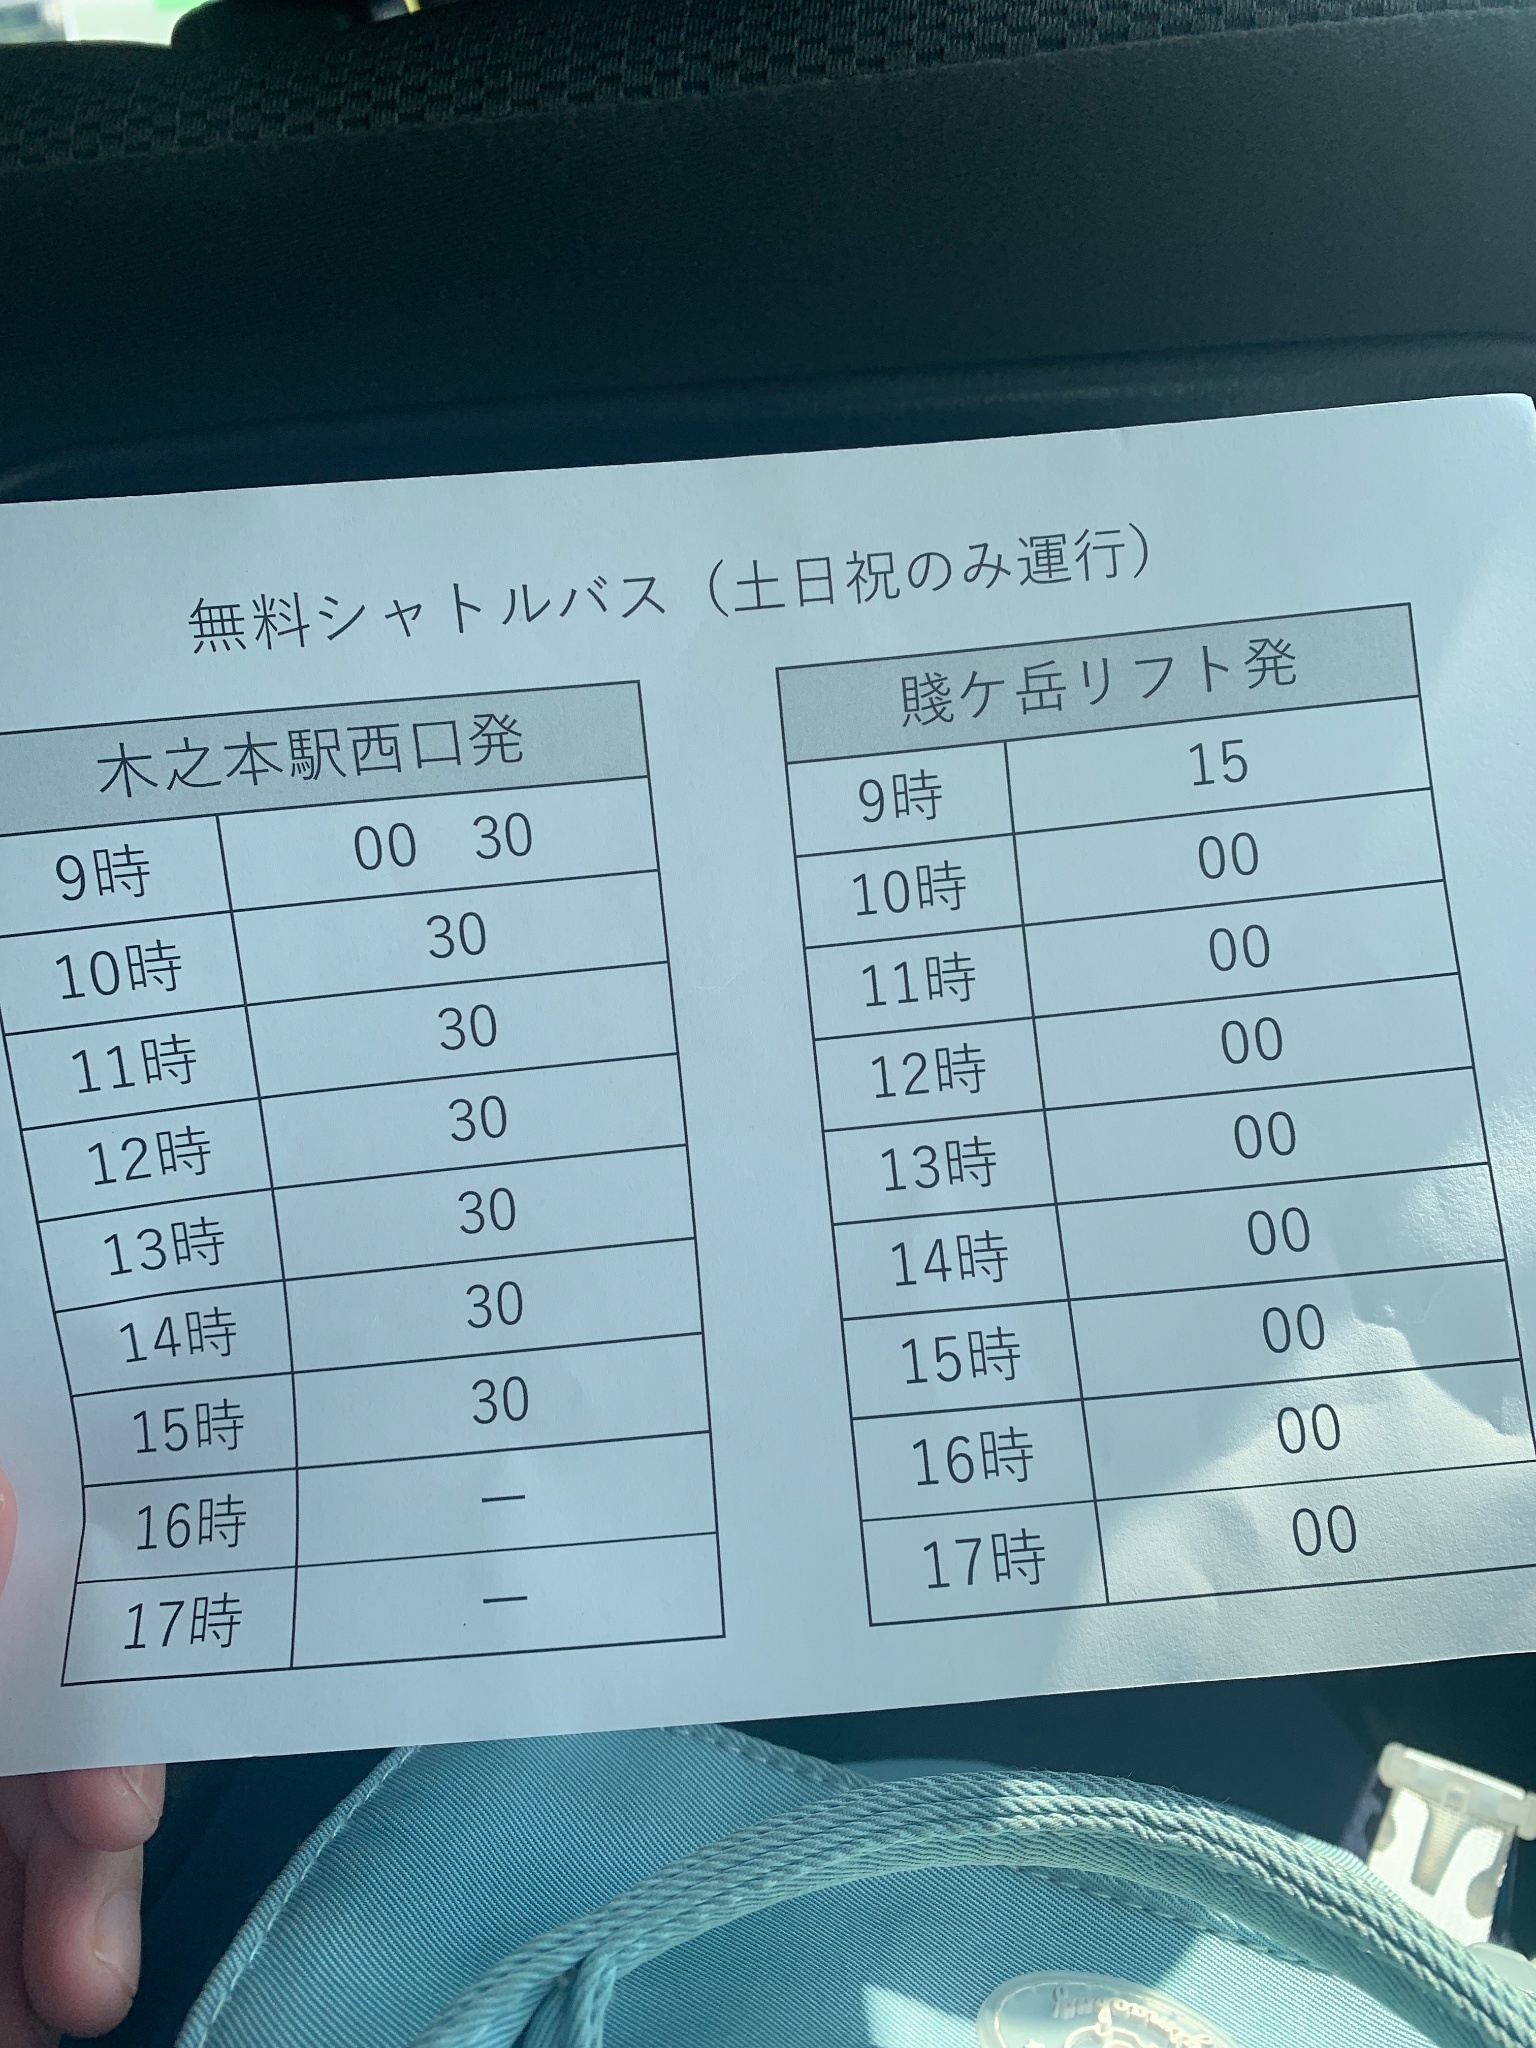 無料シャトルバス（土日祝のみ運行）
木之本駅西口発
9時 00 30
10時 30
11時 30
12時 30
13時 30
14時 30
15時 30
16時 ー
17時 ー
賤ケ岳リフト発
9時 15
10時 00
11時 00
12時 00
13時 00
14時 00
15時 00
16時 00
17時 00